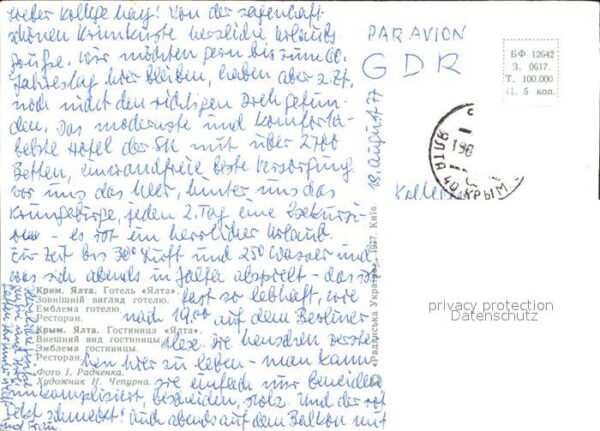 Lieber Kollege Hay! Von der sagenhaft
schönen Krimküste herzliche Urlaubs
grüße. Wir möchten gern bis zum 60.
Jahrestag hier bleiben, haben aber z.Zt.
noch nicht den richtigen Dreh gefun-
den. Das modernste und komforta-
belste Hotel der SU mit über 2700
Betten, einwandfreie beste Versorgung
vor uns das Meer, hinter uns das
Krimgebirge, jeden 2. Tag eine Exkursi-
on – es ist ein herrlicher Urlaub.
Zur Zeit bis 30° Luft und 25° Wasser und
was sich abends in Jalta abspielt - das ist
fast so lebhaft, wie
nach 19,00 auf dem Berliner
Alex. Die Menschen verste-
hen hier zu leben - man kann
sie einfach nur beneiden
unkompliziert, bescheiden, stolz und der
Sekt schmeckt! Auch abends auf dem Balkon mit
und Frau
Крим. Ялта. Готель «Ялта».
Зовнішній вигляд готелю.
Емблема готелю.
Ресторан.
Крым. Ялта. Гостиница «Ялта».
Внешний вид гостиницы.
Эмблема гостиницы.
Ресторан.
Фото І. Радченка.
Художник Н. Чепурна.
© «Радянська Україна». 1977. Київ.
18. August 77
PAR AVION
GDR
БФ 12642
З. 0617.
Т. 100.000
Ц. 5 коп.
ЯЛТА
КРЫМ
privacy protection
Datenschutz